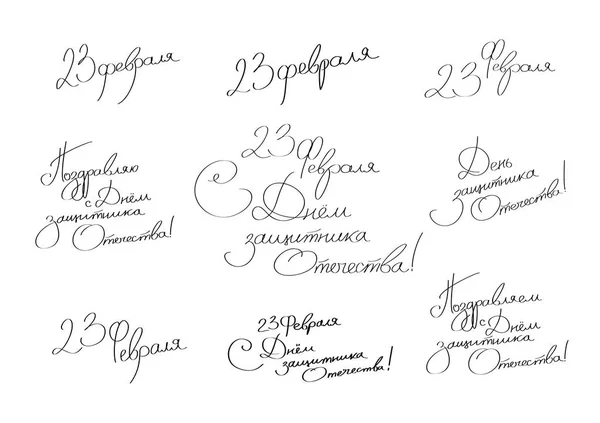 23 февраля
23 февраля
23
Февраля
Поздравляю
с Днём
защитника
Отечества!
23
Февраля
С Днём
защитника
Отечества!
День
защитника
Отечества!
23
Февраля
23 Февраля
С Днём
защитника
Отечества!
Поздравляем
с Днём
защитника
Отечества!